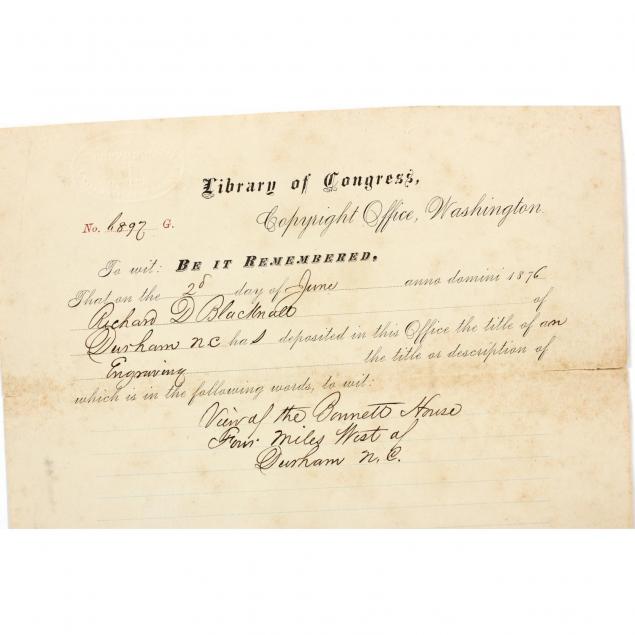 Library of Congress,
No. 6897 G.
Copyright Office, Washington.
To wit: Be it Remembered,
That on the 2d day of June anno domini 1876
Richard D Blacknall of
Durham N C has deposited in this Office the title of an
Engraving the title or description of
which is in the following words, to wit:
View of the Bennett House
Four Miles West of
Durham N. C.